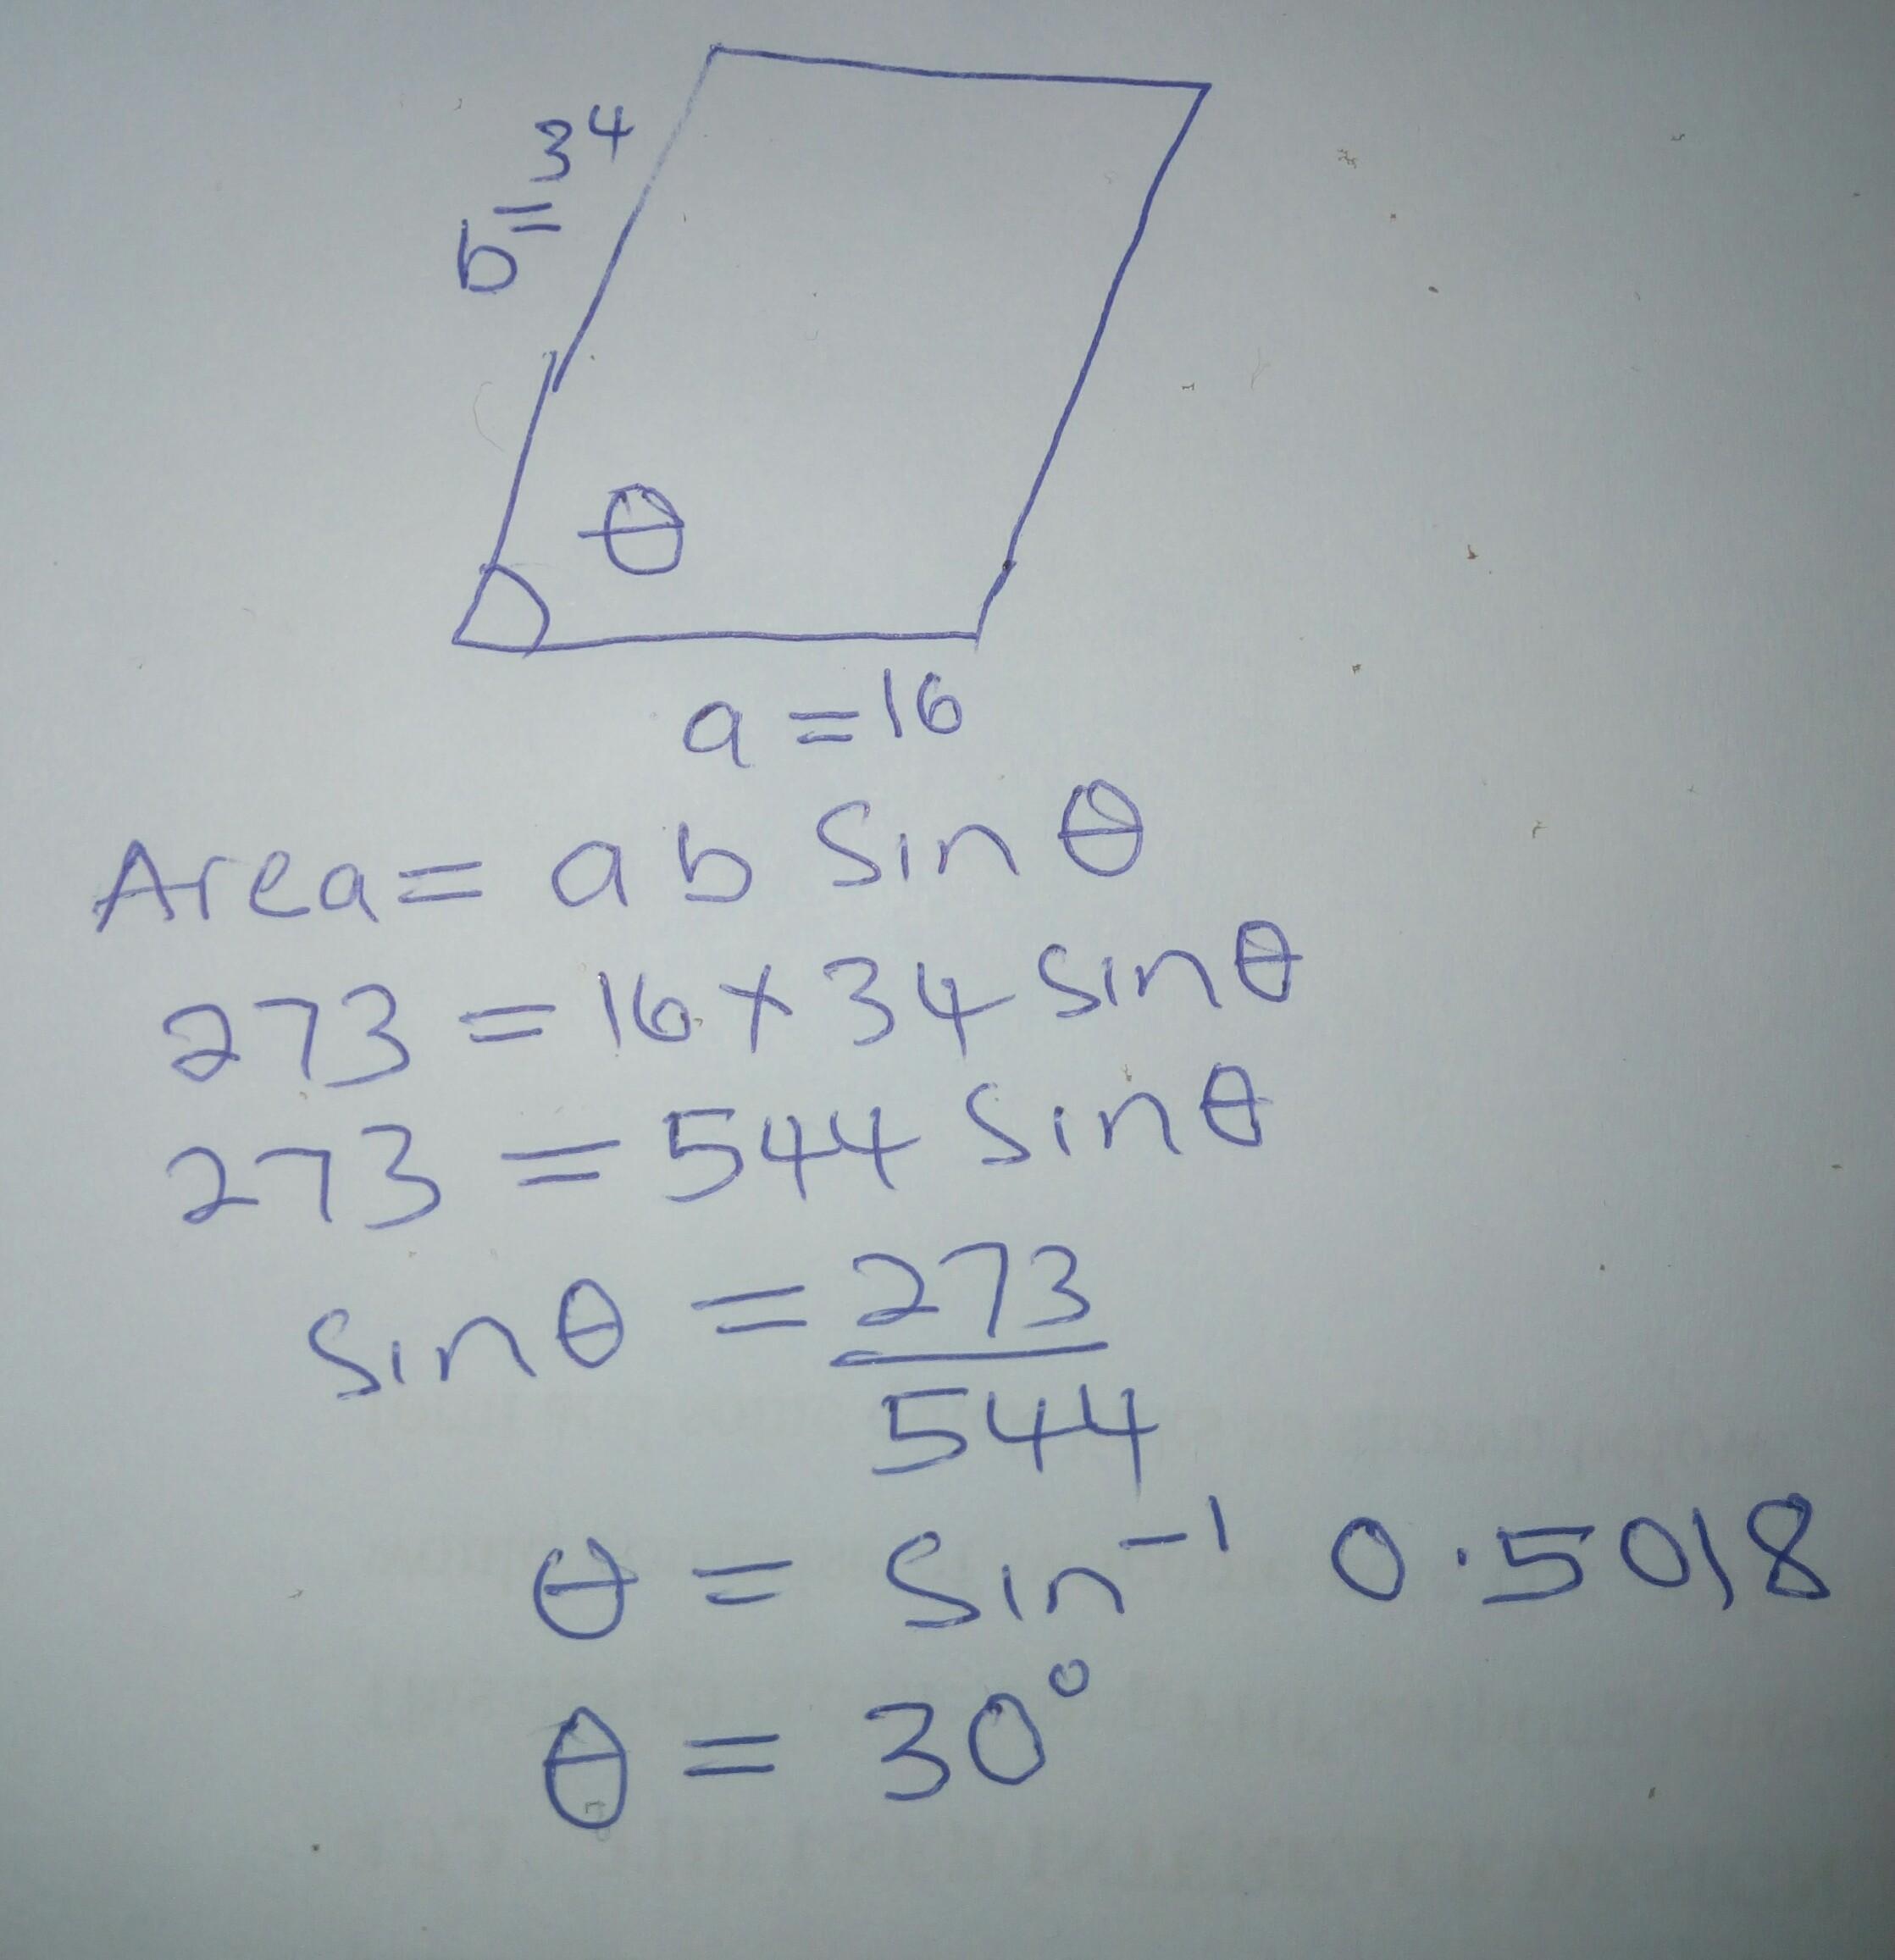 b=34
θ
a=16
Area= ab Sinθ
273=16×34 sinθ
273=544 Sinθ
Sinθ=273/544
θ = Sin⁻¹ 0.5018
θ = 30°